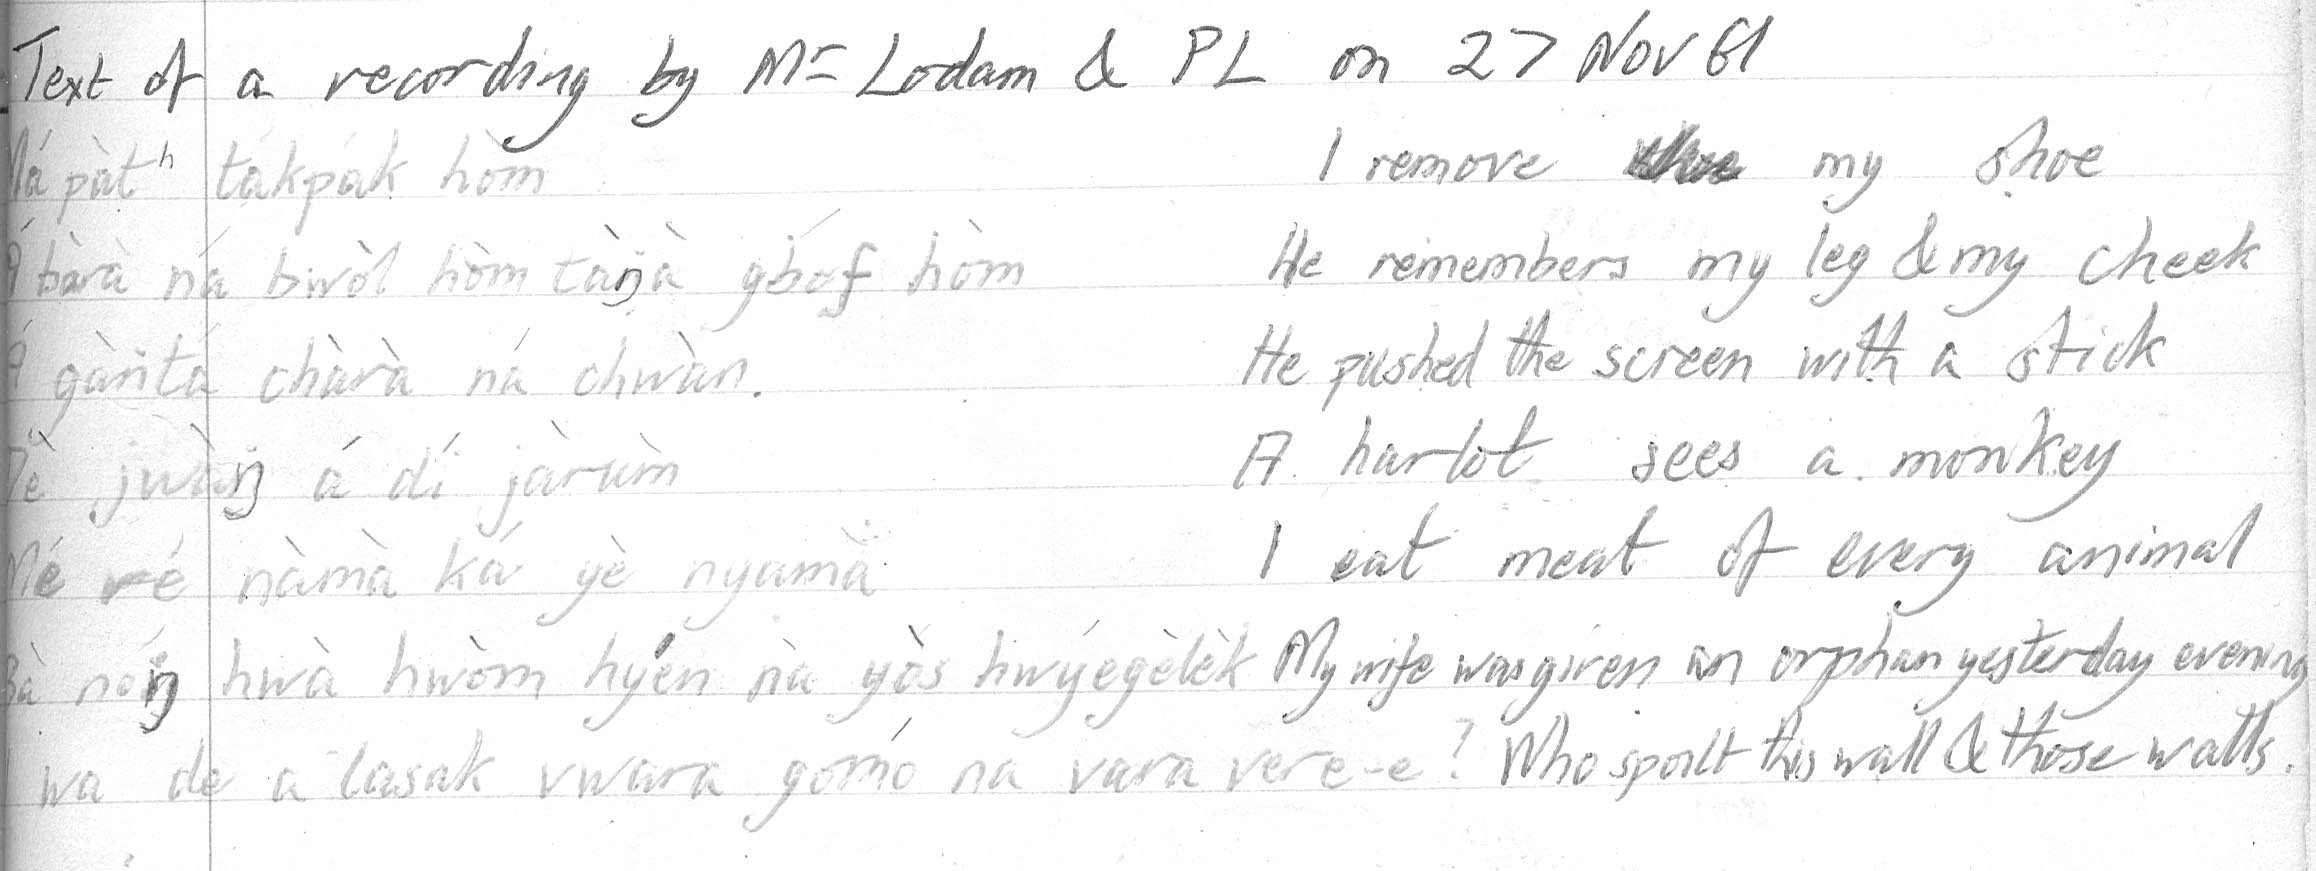 Text of a recording by Mr Lodam & PL on 27 Nov 61
Ná pàtʰ tákpák hòm I remove my shoe
Á bàrà ná bwòl hòm tàŋà gbóf hòm He remembers my leg & my cheek
Á gàňtá chàrà ná chwàn. He pushed the screen with a stick
jwàŋ á dí jàrùm A harlot sees a monkey
Mé ré nàmà ká yè nyamà I eat meat of every animal
Bà nóŋ hwà hwòm hyén nà yòs hwyégèlèk My wife was given an orphan yesterday evening
wa de a lasak vwara gomó na vara vere-e? Who spoilt this wall & those walls.